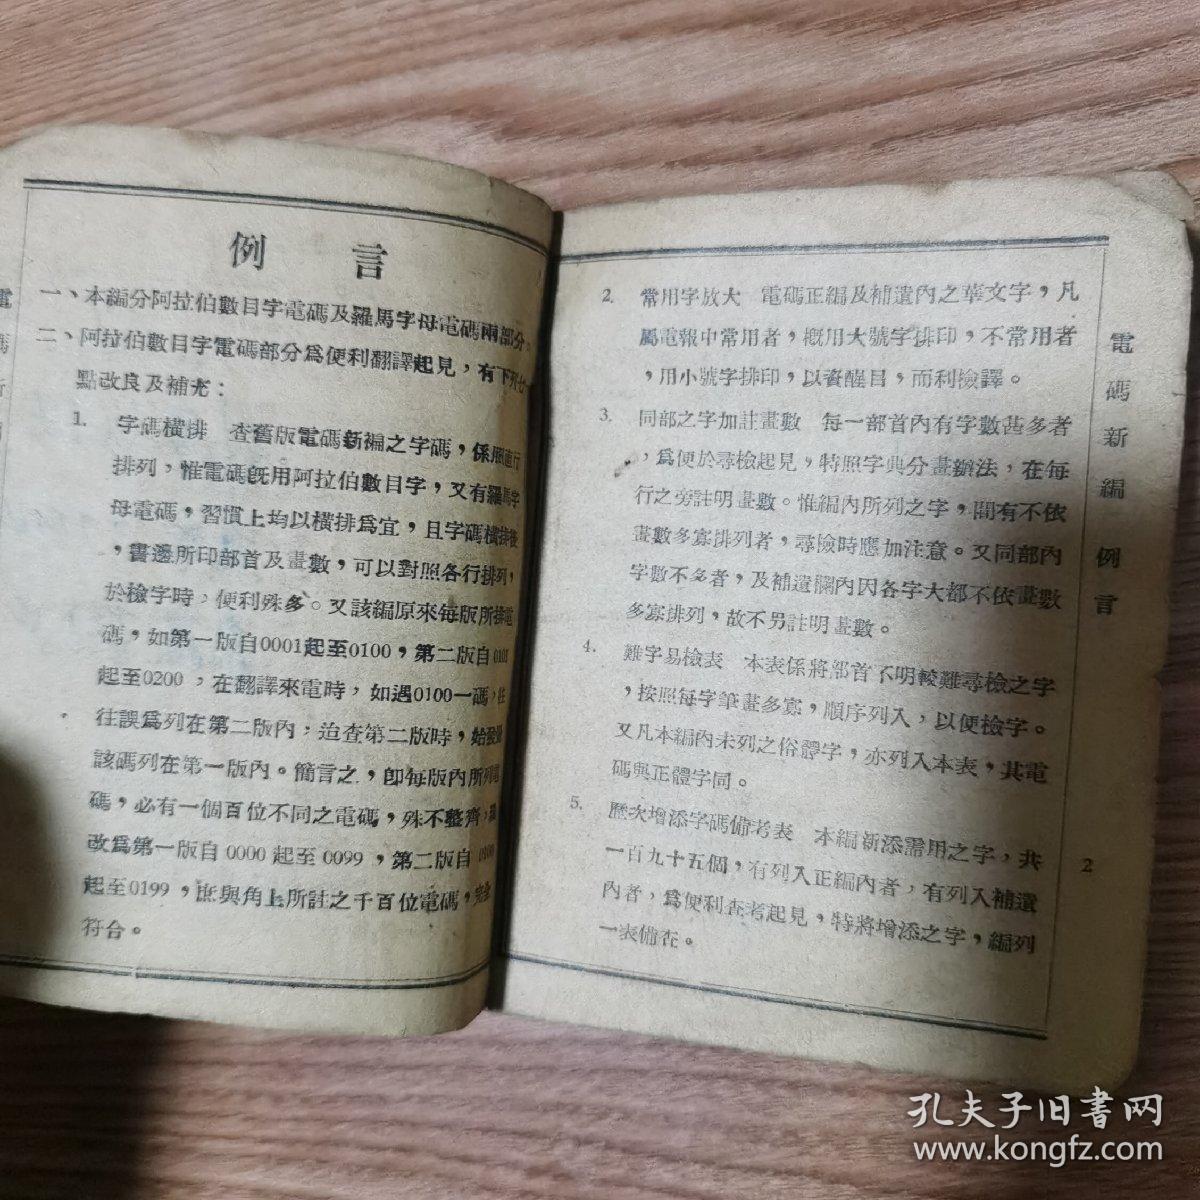 例言
一、本編分阿拉伯數目字電碼及羅馬字母電碼兩部分。
二、阿拉伯數目字電碼部分爲便利翻譯起見，有下列七
點改良及補充：
1. 字碼橫排　查舊版電碼新編之字碼，係用直行
排列，惟電碼旣用阿拉伯數目字，又有羅馬字
母電碼，習慣上均以橫排爲宜，且字碼橫排後
，書邊所印部首及畫數，可以對照各行排列，
於檢字時，便利殊多。又該編原來每版所排電
碼，如第一版自0001起至0100，第二版自0101
起至0200，在翻譯來電時，如遇0100一碼，往
往誤爲列在第二版內，迨查第二版時，始發覺
該碼列在第一版內。簡言之，卽每版內所列電
碼，必有一個百位不同之電碼，殊不整齊，
改爲第一版自0000起至0099，第二版自0100
起至0199，庶與角上所註之千百位電碼，完全
符合。
2. 常用字放大　電碼正編及補遺內之華文字，凡
屬電報中常用者，槪用大號字排印，不常用者
，用小號字排印，以資醒目，而利檢譯。
3. 同部之字加註畫數　每一部首內有字數甚多者
，爲便於尋檢起見，特照字典分畫辦法，在每
行之旁註明畫數。惟編內所列之字，間有不依
畫數多寡排列者，尋檢時應加注意。又同部內
字數不多者，及補遺欄內因各字大都不依畫數
多寡排列，故不另註明畫數。
4. 難字易檢表　本表係將部首不明較難尋檢之字
，按照每字筆畫多寡，順序列入，以便檢字。
又凡本編內未列之俗體字，亦列入本表，其電
碼與正體字同。
5. 歷次增添字碼備考表　本編新添需用之字，共
一百九十五個，有列入正編內者，有列入補遺
內者，爲便利查考起見，特將增添之字，編列
一表備查。
電碼新編　例言
2
孔夫子旧书网
www.kongfz.com